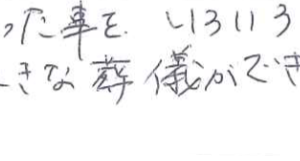 った事を、いろいろ
きな葬儀ができ